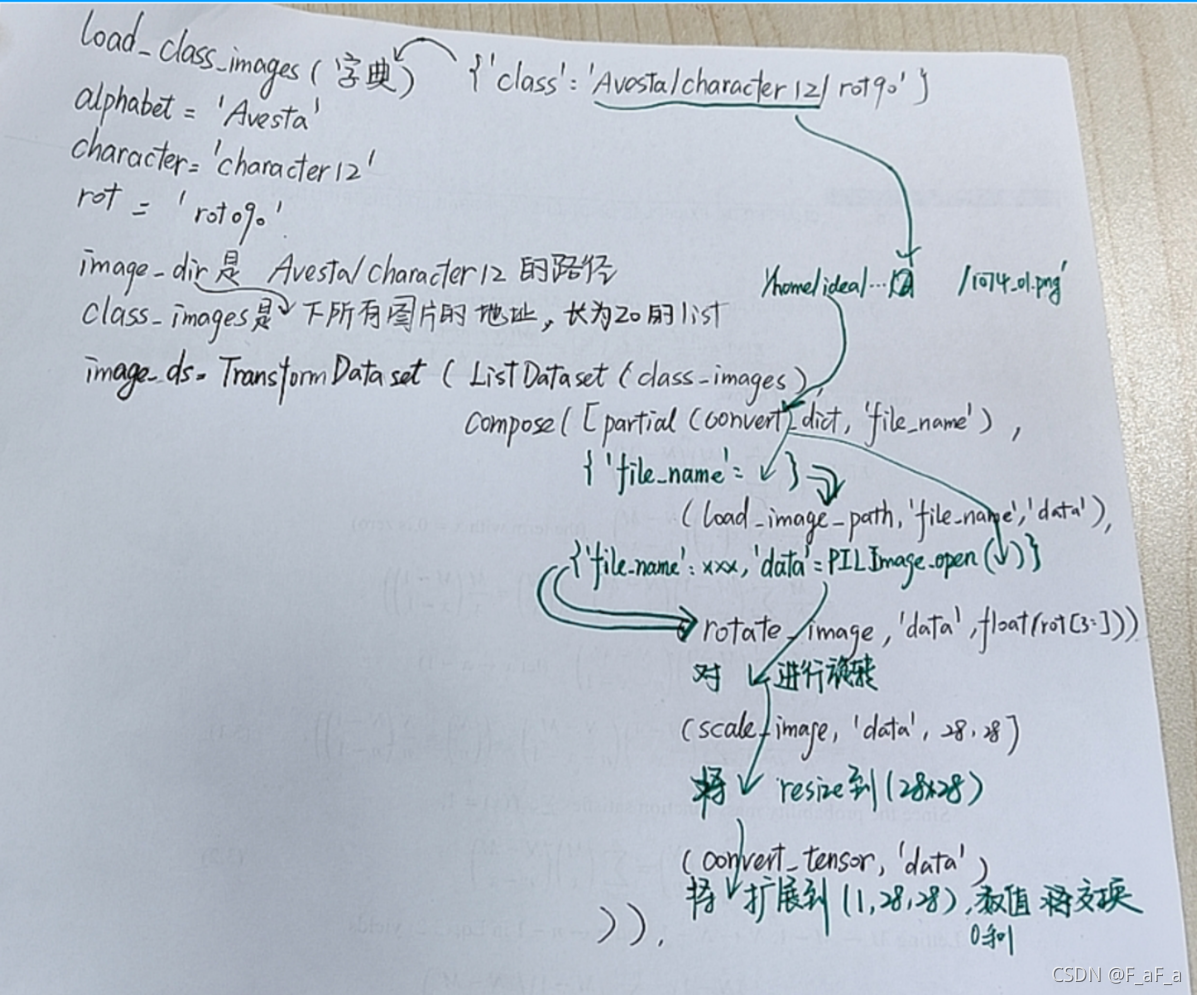 load_class_images (字典) {'class': 'Avosta/character12/rot90'}
alphabet = 'Avesta'
character= 'character12'
rot = 'rot090'
image_dir是 Avesta/character12 的路径
'/home/ideal... /1074_01.png'
class_images是 下所有图片的地址，长为20的list
image_ds= TransformDataset (ListDataset (class_images),
compose([partial (convert_dict, 'file_name'),
{'file_name': }
(load_image_path, 'file_name', 'data'),
{'file_name': xxx, 'data'=PILImage.open( )}
rotate_image, 'data', float(rot[3:]))
对 进行旋转
(scale_image, 'data', 28,28)
将 resize到(28x28)
(convert_tensor, 'data')
将 扩展到 (1,28,28), 数值 将交换
)), 0和1
CSDN @F_aF_a